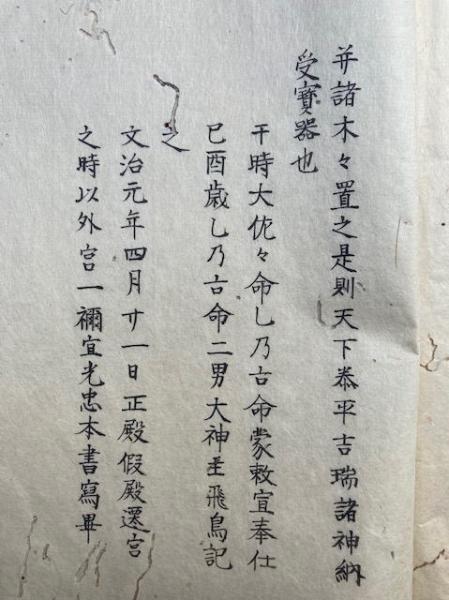 并諸木々置之是則天下泰平吉瑞諸神納
受寶器也
干時大佐々命乚乃古命蒙敕宣奉仕
巳酉歳乚乃古命二男大神主飛鳥記
之
文治元年四月廿一日正殿假殿遷宮
之時以外宮一禰宜光忠本書寫畢